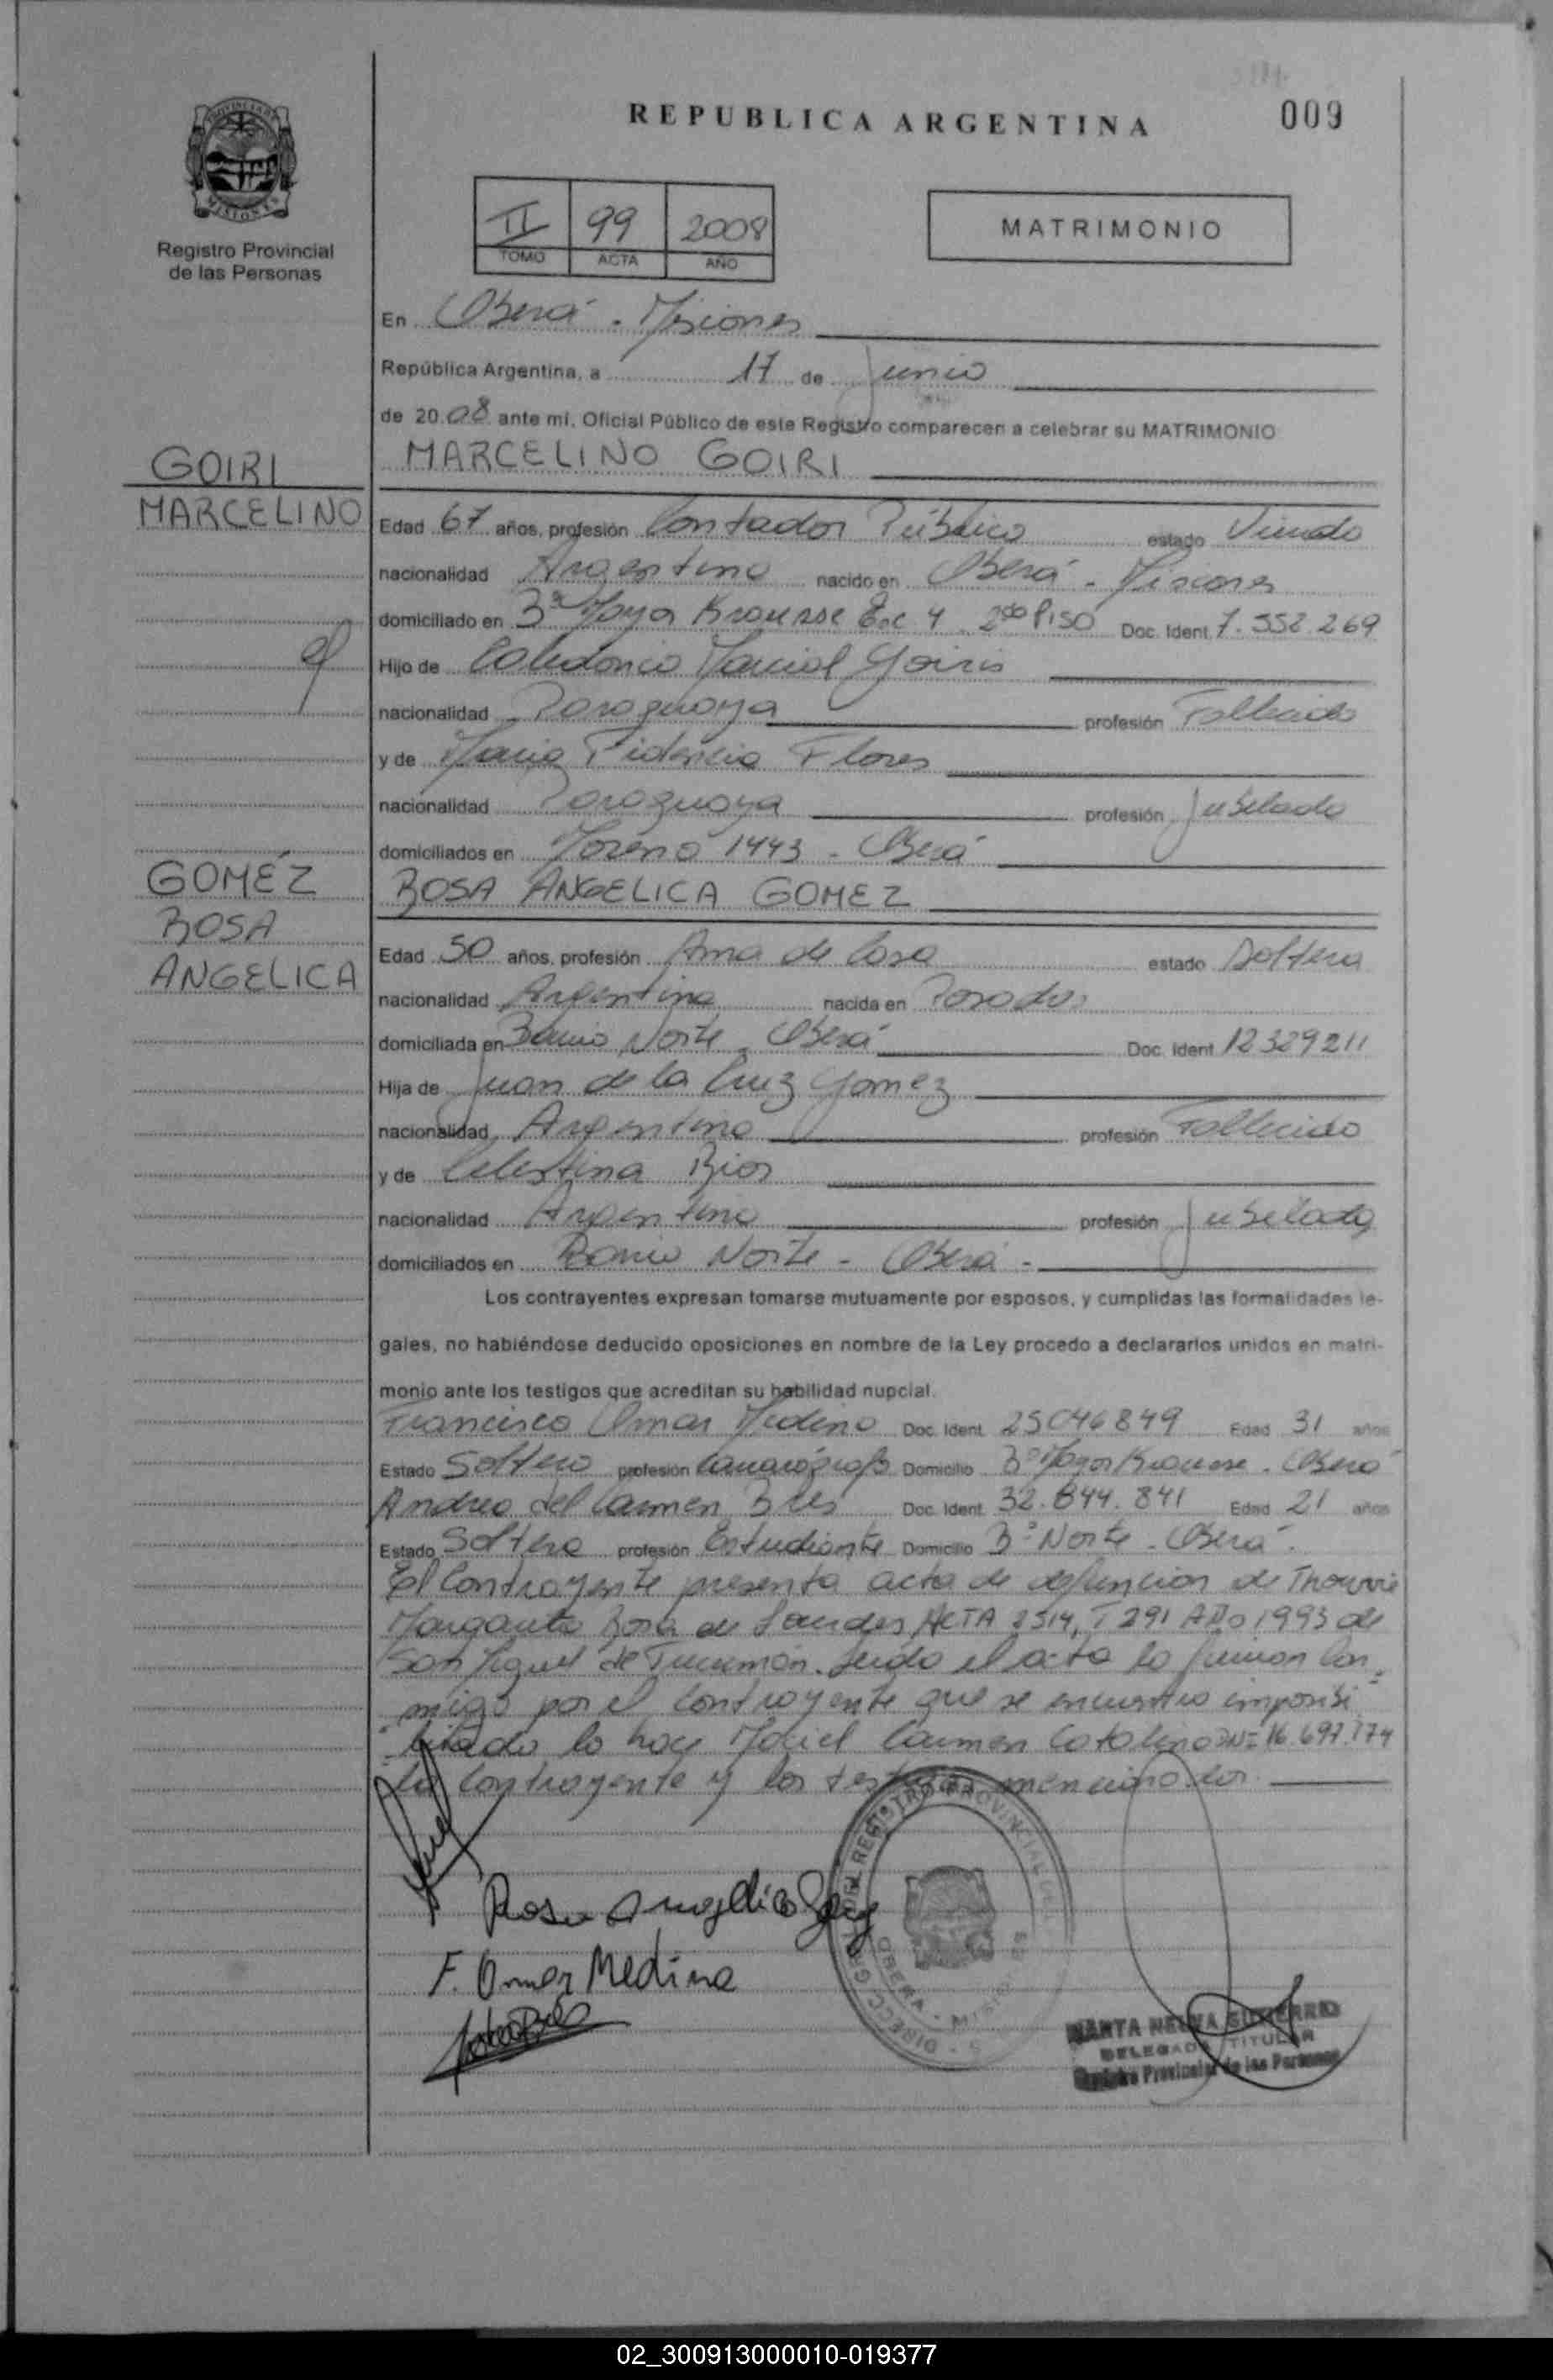 REPUBLICA ARGENTINA
009
PROVINCIA DE
MISIONES
Registro Provincial
de las Personas
II 99 2008
TOMO ACTA AÑO
MATRIMONIO
En Oberá - Misiones
República Argentina, a 17 de Junio
de 20 08 ante mí, Oficial Público de este Registro comparecen a celebrar su MATRIMONIO
GOIRI
MARCELINO
MARCELINO GOIRI
Edad 67 años, profesión Contador Público estado Viudo
nacionalidad Argentina nacido en Oberá - Misiones
domiciliado en Bº Krausse Esc 4 2do Piso Doc. Ident. 7.552.269
Hijo de Marcial Goiris
nacionalidad Paraguaya profesión Fallecido
y de Maria Fidencia Flores
nacionalidad Paraguaya profesión Jubilada
domiciliados en Moreno 1443 - Oberá
GOMÉZ
ROSA
ANGELICA
ROSA ANGELICA GOMEZ
Edad 50 años, profesión Ama de Casa estado Soltera
nacionalidad Argentina nacida en Posadas
domiciliada en Barrio Norte - Oberá Doc. Ident 12329211
Hija de Juan de la Cruz Gomez
nacionalidad Argentina profesión Fallecido
y de Celestina Rios
nacionalidad Argentina profesión Jubilada
domiciliados en Barrio Norte - Oberá -
Los contrayentes expresan tomarse mutuamente por esposos, y cumplidas las formalidades le-
gales, no habiéndose deducido oposiciones en nombre de la Ley procedo a declararlos unidos en matri-
monio ante los testigos que acreditan su habilidad nupcial.
Francisco Omar Medina Doc. Ident. 25046849 Edad 31 años
Estado Soltero profesión Camarógrafo Domicilio Bº Krausse - Oberá
Andrea del Carmen Bres Doc. Ident. 32.844.841 Edad 21 años
Estado Soltera profesión Estudiante Domicilio Bº Norte - Oberá -
El Contrayente presenta acta de defuncion de
Margarita Rosa de Lourdes ACTA 2514, T 291 AÑo 1993 de
San Miguel de Tucumán. Leida el acta la firman con-
migo por el contrayente que se encuentra imposibi-
litado lo hace Mariel Carmen Catalina DNI 16.697.174
La Contrayente y los testigos mencionados.
Rosa Angelica
F. Omar Medina
DIRECC. GRAL. DEL REGISTRO PROVINCIAL DE
OBERA - MISIONES
MARTA NELVA
DELEGADA TITULAR
Registro Provincial de las Personas
02_300913000010-019377